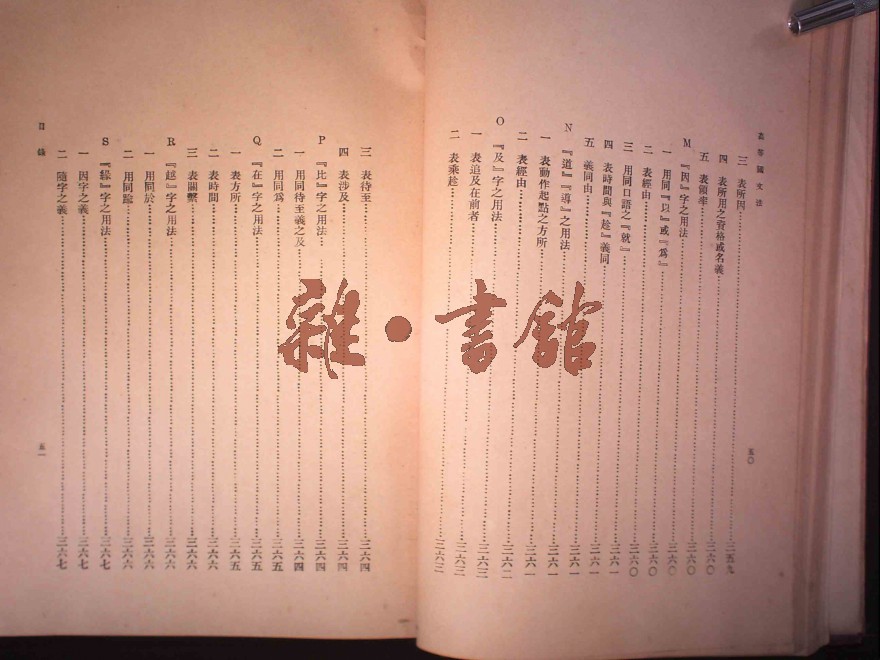 高等國文法
三 表所因……三五九
四 表所用之資格或名義……三六〇
五 表領率……三六〇
M 『因』字之用法……三六〇
一 用同『以』或『爲』……三六〇
二 表經由……三六〇
三 用同口語之『就』……三六〇
四 表時間與『趁』義同……三六一
五 義同由……三六一
N 『道』『導』之用法……三六一
一 表動作起點之方所……三六一
二 表經由……三六一
O 『及』字之用法……三六二
一 表追及在前者……三六三
二 表乘趁……三六三
五〇
三 表待至……三六四
四 表涉及……三六四
P 『比』字之用法……三六四
一 用同待至義之及……三六四
二 用同爲……三六五
Q 『在』字之用法……三六五
一 表方所……三六五
二 表時間……三六六
三 表關繫……三六六
R 『越』字之用法……三六六
一 用同於……三六六
二 用同踰……三六六
S 『緣』字之用法……三六七
一 因字之義……三六七
二 隨字之義……三六七
目錄
五一
雜·書館